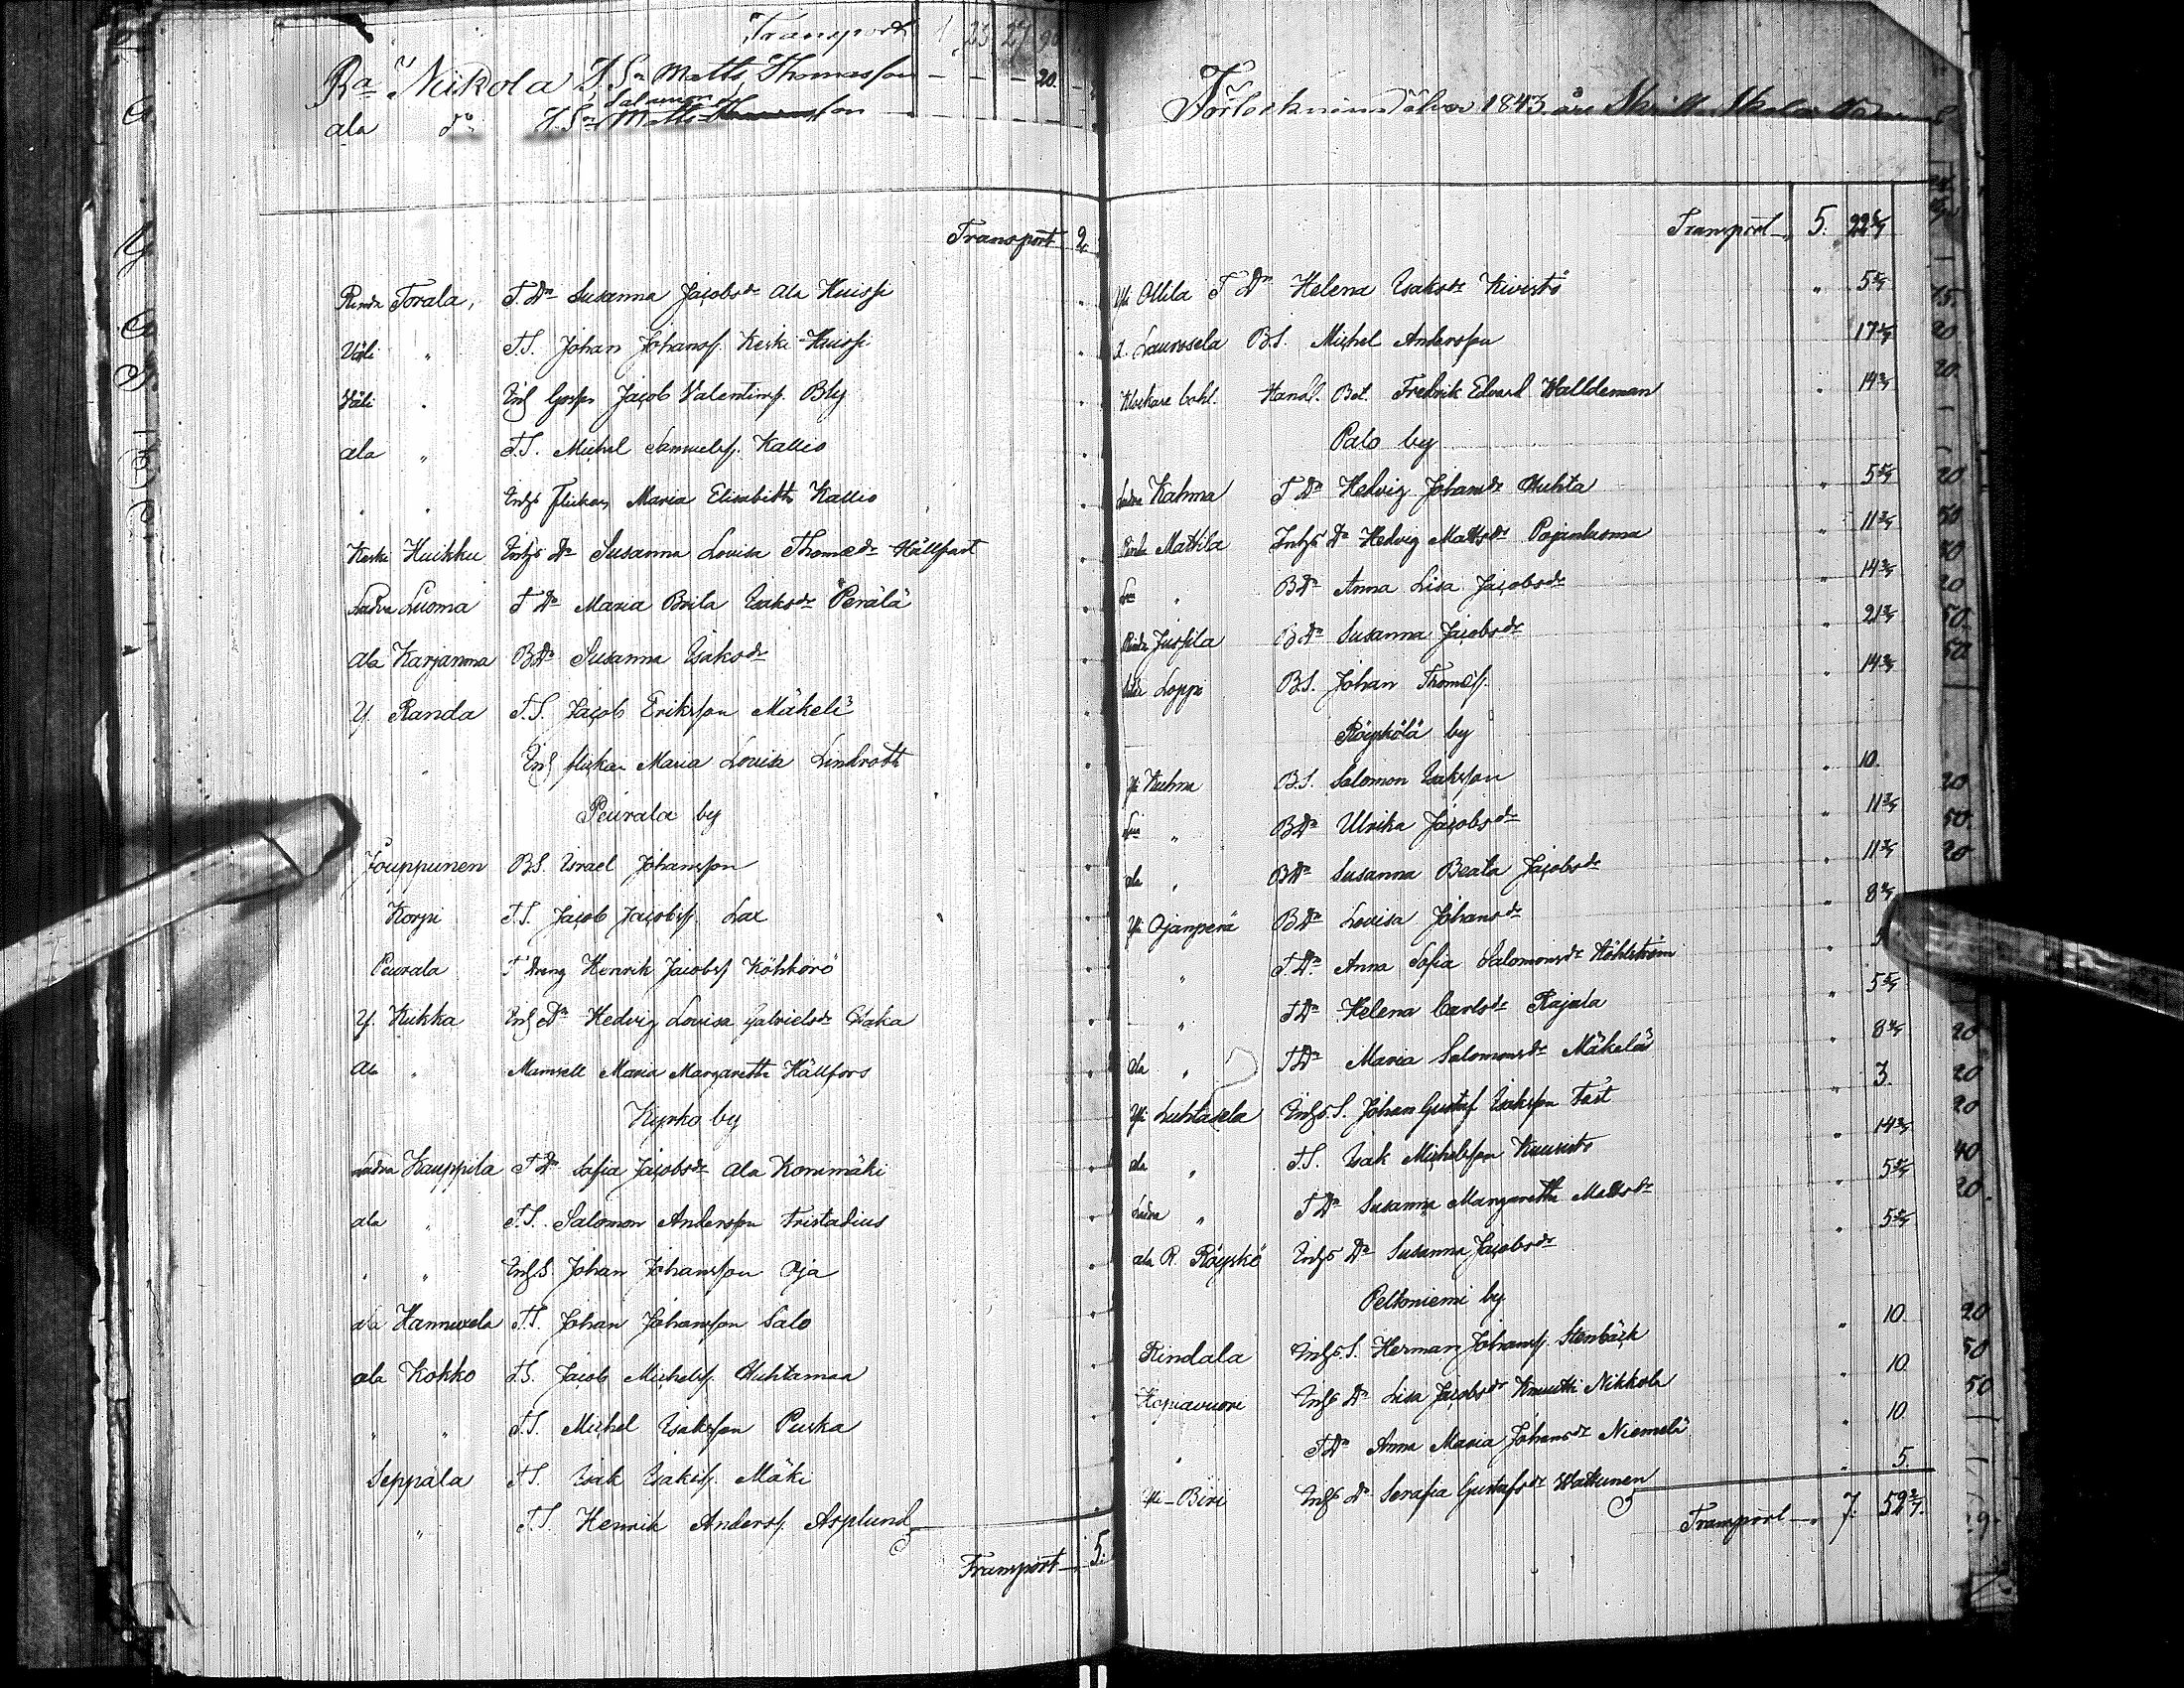 Transport 1 23 27 90
Ra Niikola T.Sn Matts Thomasson - - - 20
Salamon
ala do T.Sn Matts son
Transport 2
Rinda Torala, T. Dn Susanna Jacobsdr Ala Huissi
Väli " T.S. Johan Johanss. Keski-Huissi
Väli " Inh Gosse Jacob Valentinss. Bly
ala " T.S. Michel Samuelss. Kallio
" " Inhs Flickan Maria Elisabeth Kallio
Keski Huikku Inhs Dn Susanna Lovisa Thomædr Hällfast
Ladva Luoma T Dn Maria Brita Isaksdr Perälä
Ala Karjanma BDn Susanna Isaksdr
Y. Randa T.S. Jacob Eriksson Mäkelä
" Inh flickan Maria Lovisa Lindroth
Peurala by
Jouppunen BS. Israel Johansson
Korpi T.S. Jacob Jacobss. Lax
Peurala T Dreng Henrik Jacobss Köhkörö
Y. Kuhka Inh Dn Hedvig Lovisa Gabrielsdr
Ala " Mamsell Maria Margaretha Hällfors
Kyrko by
Ladva Kauppila T Dn Sofia Jacobsdr Ala Kornimäki
ala " T.S. Salomon Andersson Fristadius
" " Inh.S. Johan Johansson Oja
ala Hannuxela T.S. Johan Johansson Salo
ala Kokko T.S. Jacob Michelss. Huhtamaa
" " T.S. Michel Isaksson Puska
Seppälä T.S. Isak Isakss. Mäki
" T.S. Henrik Anderss. Asplund
Transport 5.
Förteckning öfver 1843 års
Transport 5. 22 6/7
Yli Ollila T Dn Helena Isaksdr Kivistö " 5 5/7
A. Laurosela B.S. Michel Andersson " 17 1/7
Klockare bohl. Handl. Bet. Fredrik Edvard Walldeman " 14 2/7
Palo by
Ladva Kahma T Dn Hedvig Johansdr Huhta " 5 5/7
Rinda Mattila Inhs Dn Hedvig Mattsdr Pajanluoma " 11 3/7
" BDn Anna Lisa Jacobsdr " 14 2/7
Rinda Jussila BDn Susanna Jacobsdr " 21 3/7
Loppi B.S. Johan Thomæss. " 14 2/7
Röyskölä by
Yli Kuhna B.S. Salomon Isaksson " 10.
" BDn Ulrika Jacobsdr " 11 3/7
ala " BDn Susanna Beata Jacobsdr " 11 3/7
Yli Ojanperä BDn Lovisa Johansdr " 8 4/7
" T.Dn. Anna Sofia Salomonsdr " 5
" TDn Helena Carlsdr Rajala " 5 5/7
ala " TDn Maria Salomonsdr Mäkelä " 8 4/7
Yli Luhtasela Inhs.S. Johan Gustaf Isaksson Fast " 3.
ala " T.S. Isak Michelsson Kuusisto " 14 2/7
Ladva " T Dn Susanna Margaretha Mattsdr " 5 5/7
ala R. Röyskö Inhs Dn Susanna Jacobsdr " 5 5/7
Peltoniemi by
Rindala Inhs.S. Herman Johanss. Stenbäck " 10.
Kopiavuori Inhs Dn Lisa Jacobsdr Knuutti Nikkola " 10.
" TDn Anna Maria Johansdr Niemelä " 10.
Yli-Biri Inhs Dn Serafia Gustafsdr Wattunen " 5.
Transport 7. 52 2/7.